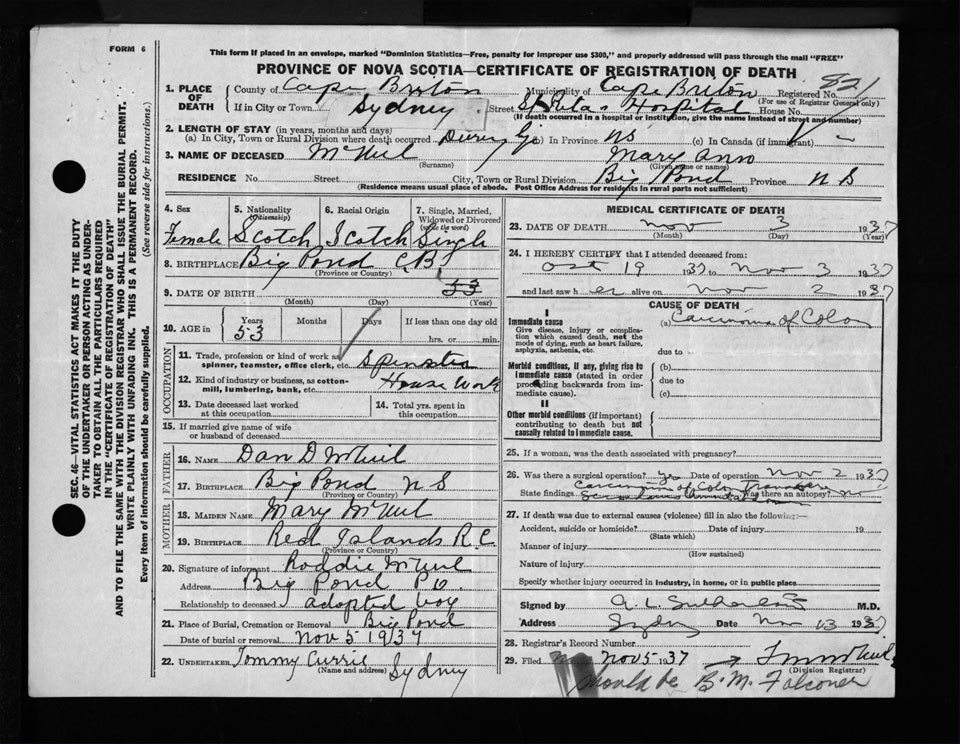 FORM 6
This form if placed in an envelope, marked "Dominion Statistics—Free, penalty for improper use $300," and properly addressed will pass through the mail "FREE"
PROVINCE OF NOVA SCOTIA—CERTIFICATE OF REGISTRATION OF DEATH
SEC. 46—VITAL STATISTICS ACT MAKES IT THE DUTY
OF THE UNDERTAKER OR PERSON ACTING AS UNDER-
TAKER TO OBTAIN ALL THE PARTICULARS REQUIRED
IN THE "CERTIFICATE OF REGISTRATION OF DEATH"
AND TO FILE THE SAME WITH THE DIVISION REGISTRAR WHO SHALL ISSUE THE BURIAL PERMIT.
WRITE PLAINLY WITH UNFADING INK. THIS IS A PERMANENT RECORD.
Every item of information should be carefully supplied. (See reverse side for instructions.)
1. PLACE OF DEATH County of Cape Breton Municipality of Cape Breton Registered No. 821
(For use of Registrar General only)
If in City or Town Sydney Street St Ritas Hospital House No.
(If death occurred in a hospital or institution, give the name instead of street and number)
2. LENGTH OF STAY (in years, months and days)
(a) In City, Town or Rural Division where death occurred (b) In Province NS (c) In Canada (if immigrant)
3. NAME OF DECEASED McNeil Mary Ann
(Surname) (Given name or names)
RESIDENCE No. Street City, Town or Rural Division Big Pond Province N S
(Residence means usual place of abode. Post Office Address for residents in rural parts not sufficient)
4. Sex Female
5. Nationality (Citizenship) Scotch
6. Racial Origin Scotch
7. Single, Married, Widowed or Divorced (write the word) Single
8. BIRTHPLACE Big Pond C B
(Province or Country)
9. DATE OF BIRTH 53
(Month) (Day) (Year)
10. AGE in Years 53 Months Days If less than one day old hrs. or min.
OCCUPATION
11. Trade, profession or kind of work as spinner, teamster, office clerk, etc. Spinster
12. Kind of industry or business, as cotton-mill, lumbering, bank, etc. House Work
13. Date deceased last worked at this occupation
14. Total yrs. spent in this occupation
15. If married give name of wife or husband of deceased
FATHER
16. NAME Dan D McNeil
17. BIRTHPLACE Big Pond N S
(Province or Country)
MOTHER
18. MAIDEN NAME Mary McNeil
19. BIRTHPLACE Red Islands R C
(Province or Country)
20. Signature of informant Roddie McNeil
Address Big Pond P O.
Relationship to deceased adopted boy
21. Place of Burial, Cremation or Removal Big Pond
Date of burial or removal Nov 5 1937
22. UNDERTAKER Tommy Currie Sydney
(Name and address)
MEDICAL CERTIFICATE OF DEATH
23. DATE OF DEATH Nov 3 1937
(Month) (Day) (Year)
24. I HEREBY CERTIFY that I attended deceased from:
Oct 19 1937 to Nov 3 1937
and last saw her alive on Nov 2 1937
CAUSE OF DEATH
I
Immediate cause (a) Carcinoma of Colon
Give disease, injury or complication which caused death, not the mode of dying, such as heart failure, asphyxia, asthenia, etc.
due to
Morbid conditions, if any, giving rise to immediate cause (stated in order proceeding backwards from immediate cause). (b)
due to
(c)
II
Other morbid conditions (if important) contributing to death but not causally related to immediate cause.
25. If a woman, was the death associated with pregnancy?
26. Was there a surgical operation? Yes Date of operation Nov 2 1937
State findings Carcinoma of Colon Transverse
Was there an autopsy? No
27. If death was due to external causes (violence) fill in also the following:—
Accident, suicide or homicide? Date of injury 19
(State which)
Manner of injury
(How sustained)
Nature of injury
Specify whether injury occurred in industry, in home, or in public place
Signed by A. L. Sutherland M.D.
Address Sydney Date Nov 13 1937
28. Registrar's Record Number
29. Filed Nov 5 1937
(Division Registrar)
Should be B. M. Falconer